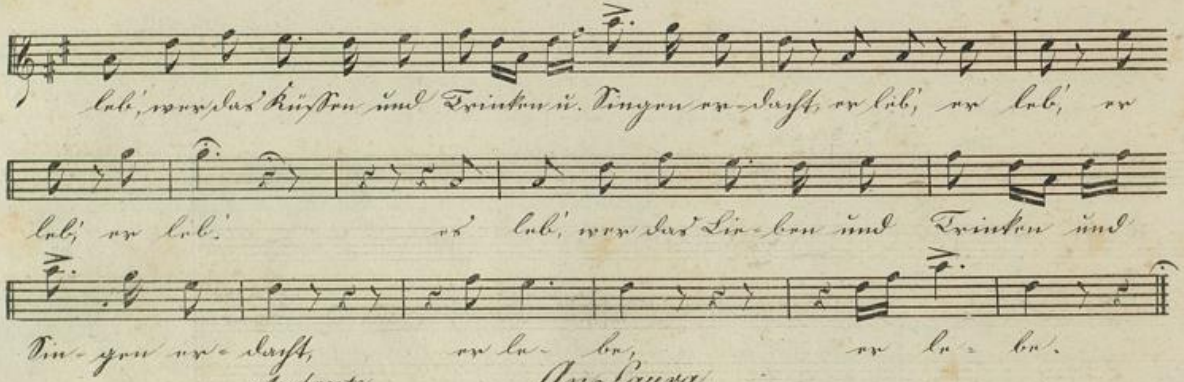 leb', wer das Küssen und Trinken u. Singen er-dacht, er leb', er leb', er
leb', er leb'. es leb', wer das Lie-ben und Trinken und
Sin-gen er-dacht, er le-be, er le-be.
An Laura